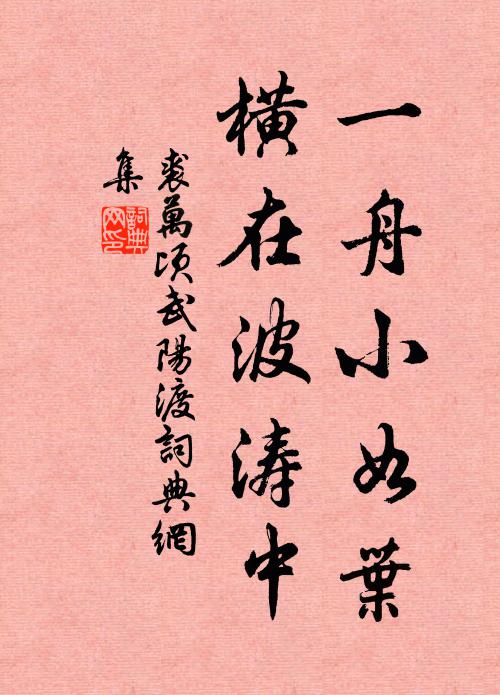 一舟小如葉
橫在波涛中
裘萬頃武陽渡詞典網
集
詞典
网印